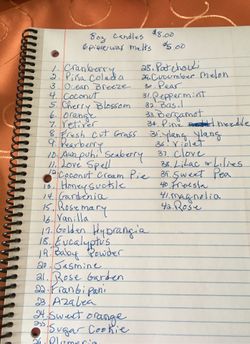 8oz Candles $8.00
6piece wax melts $5.00
1. Cranberry
2. Piña Colada
3. Ocean Breeze
4. Coconut
5. Cherry Blossom
6. Orange
7. Vetiver
8. Fresh Cut Grass
9. Pearberry
10. Seaberry
11. Love Spell
12. Coconut Cream Pie
13. Honeysuckle
14. Gardenia
15. Rosemary
16. Vanilla
17. Golden Hydrangia
18. Eucalyptus
19. Baby Powder
20. Jasmine
21. Rose Garden
22. Frangipani
23. Azalea
24. Sweet orange
25. Sugar Cookie
26. Plumeria
28. Patchouli
29. Cucumber Melon
30. Pear
31. Peppermint
32. Basil
33. Bergamot
34. Pine needle
35. ylang ylang
36. Violet
37. Clove
38. Lilac & Lilies
39. Sweet Pea
40. Freesia
41. magnolia
42. Rose